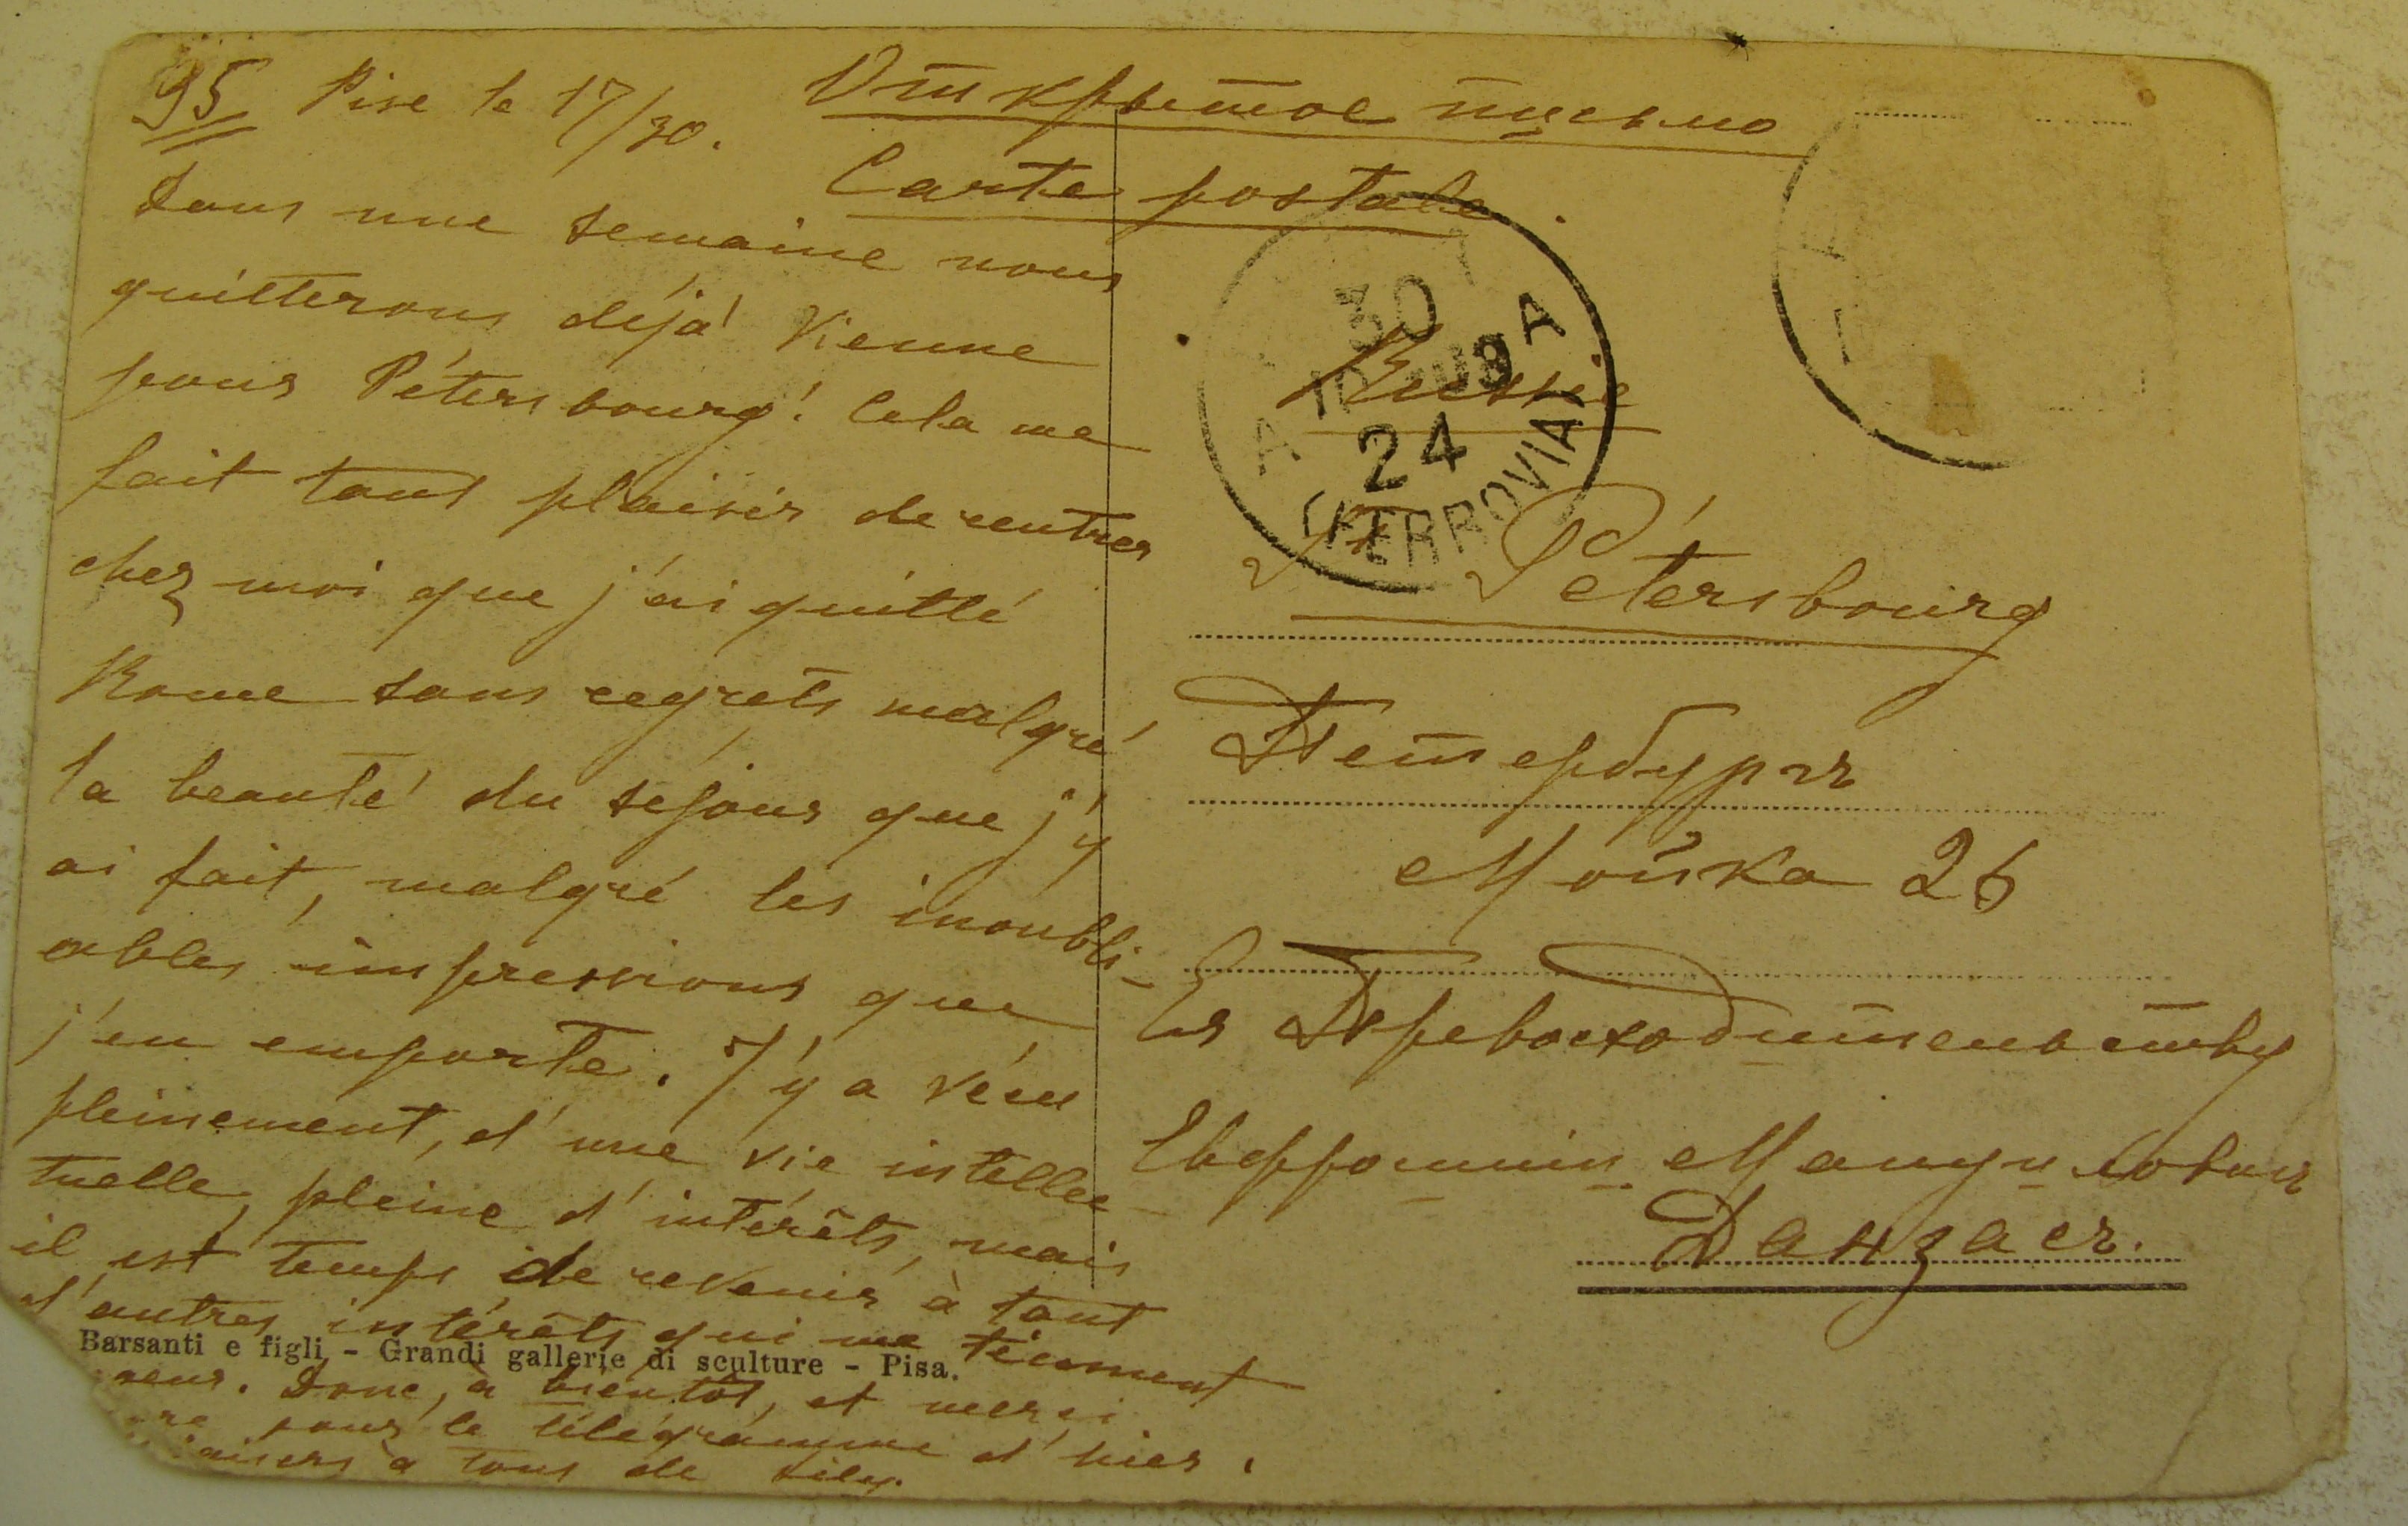 95 Pise le 17/30.
Dans une semaine nous
quitterons déjà Vienne
pour Pétersbourg! Cela me
fait tant plaisir de rentrer
chez moi que j'ai quitté
Rome sans regrets malgré
la beauté du séjour que j'y
ai fait, malgré les inoubli-
ables impressions que
j'en emporte. J'y a vécu
pleinement, d'une vie intellec-
tuelle, pleine d'intérêts, mais
il est temps de revenir à tant
d'autres intérêts qui me tiennent
Barsanti e figli - Grandi gallerie di sculture - Pisa.
Donc, à bientôt, et merci
pour le télégramme d'hier.
à tous de
Открытое письмо
Carte postale
30
24
(FERROVIA)
Russie
St Pétersbourg
Петербургъ
Мойка 26
Ея Превосходительству
Евфросиніи Мануиловнѣ
Данзасъ.